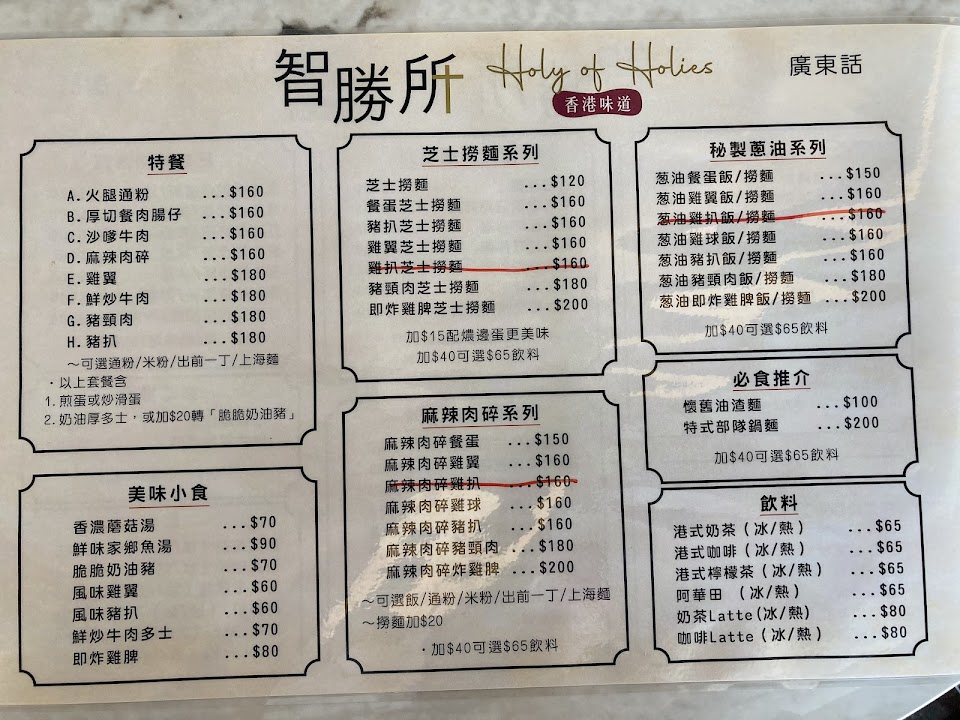 智勝所
Holy of Holies
香港味道
廣東話
特餐
A.火腿通粉 ...$160
B.厚切餐肉腸仔 ...$160
C.沙嗲牛肉 ...$160
D.麻辣肉碎 ...$160
E.雞翼 ...$180
F.鮮炒牛肉 ...$180
G.豬頸肉 ...$180
H.豬扒 ...$180
～可選通粉/米粉/出前一丁/上海麵
·以上套餐含
1.煎蛋或炒滑蛋
2.奶油厚多士，或加$20轉「脆脆奶油豬」
美味小食
香濃蘑菇湯 ...$70
鮮味家鄉魚湯 ...$90
脆脆奶油豬 ...$70
風味雞翼 ...$60
風味豬扒 ...$60
鮮炒牛肉多士 ...$70
即炸雞脾 ...$80
芝士撈麵系列
芝士撈麵 ...$120
餐蛋芝士撈麵 ...$160
豬扒芝士撈麵 ...$160
雞翼芝士撈麵 ...$160
雞扒芝士撈麵 ...$160
豬頸肉芝士撈麵 ...$180
即炸雞脾芝士撈麵 ...$200
加$15配燶邊蛋更美味
加$40可選$65飲料
麻辣肉碎系列
麻辣肉碎餐蛋 ...$150
麻辣肉碎雞翼 ...$160
麻辣肉碎雞扒 ...$160
麻辣肉碎雞球 ...$160
麻辣肉碎豬扒 ...$160
麻辣肉碎豬頸肉 ...$180
麻辣肉碎炸雞脾 ...$200
～可選飯/通粉/米粉/出前一丁/上海麵
～撈麵加$20
·加$40可選$65飲料
秘製蔥油系列
葱油餐蛋飯/撈麵 ...$150
葱油雞翼飯/撈麵 ...$160
葱油雞扒飯/撈麵 ...$160
葱油雞球飯/撈麵 ...$160
葱油豬扒飯/撈麵 ...$160
葱油豬頸肉飯/撈麵 ...$180
葱油即炸雞脾飯/撈麵 ...$200
加$40可選$65飲料
必食推介
懷舊油渣麵 ...$100
特式部隊鍋麵 ...$200
加$40可選$65飲料
飲料
港式奶茶（冰/熱） ...$65
港式咖啡（冰/熱） ...$65
港式檸檬茶（冰/熱） ...$65
阿華田 （冰/熱） ...$65
奶茶Latte(冰/熱) ...$80
咖啡Latte(冰/熱) ...$80